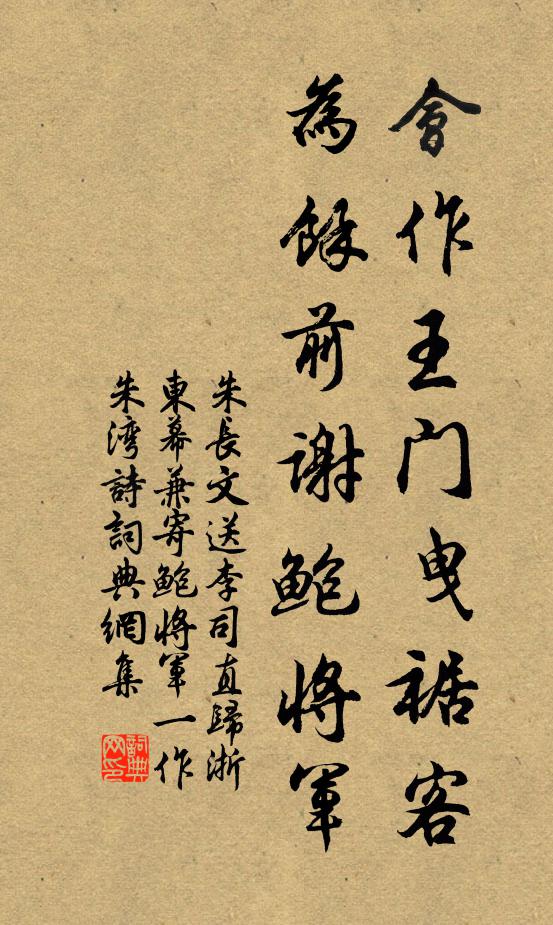 會作王門曳裾客
為餘前謝鮑將軍
朱長文送李司直歸浙
東幕兼寄鮑將軍一作
朱灣詩詞典網集
詞典
网印